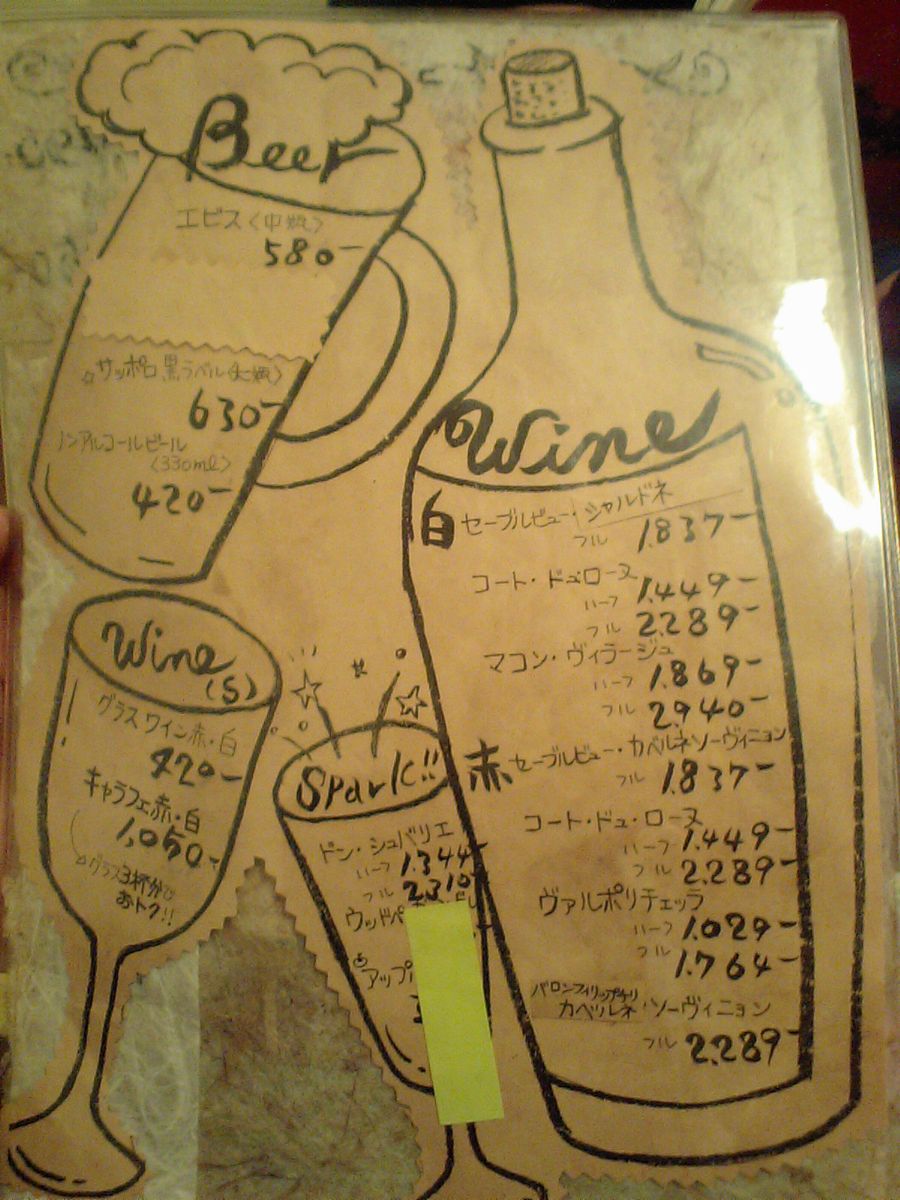 Beer
エビス〈中瓶〉
580-
サッポロ黒ラベル〈大瓶〉
630-
ノンアルコールビール
〈330ml〉
420-
Wine
(S)
グラスワイン赤・白
420-
キャラフェ赤・白
1,050-
グラス3杯分で
おトク!!
Spark!!
ドン・シュバリエ
ハーフ 1.344-
フル 2.310-
ウッドペ
アップ
Wine
白 セーブルビュー・シャルドネ
フル 1.837-
コート・ドュローヌ
ハーフ 1.449-
フル 2.289-
マコン・ヴィラージュ
ハーフ 1.869-
フル 2.940-
赤 セーブルビュー・カベルネソーヴィニョン
フル 1.837-
コート・ドュ・ローヌ
ハーフ 1.449-
フル 2.289-
ヴァルポリチェッラ
ハーフ 1.029-
フル 1.764-
バロンフィリップ
カベルネ・ソーヴィニョン
フル 2.289-